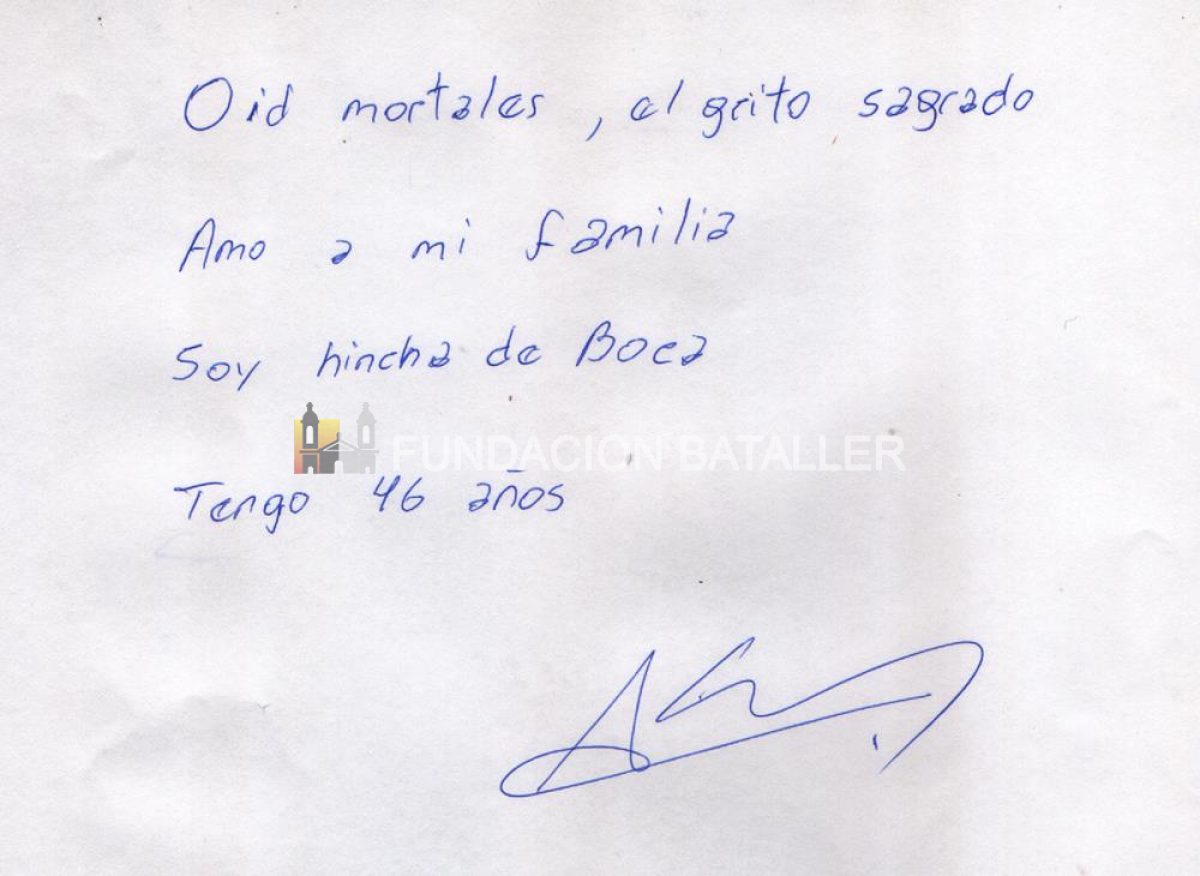 Oid mortales, el grito sagrado
Amo a mi familia
Soy hincha de Boca
FUNDACION BATALLER
Tengo 46 años